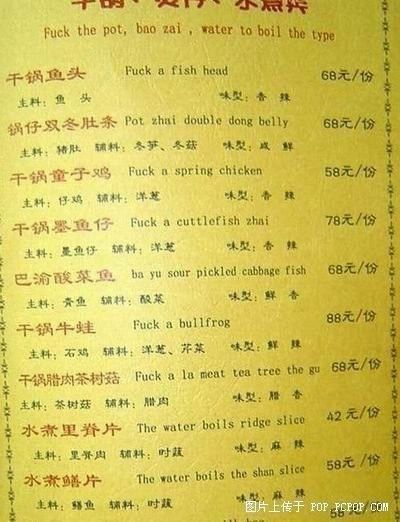 干锅、煲仔、水煮类
Fuck the pot, bao zai , water to boil the type
干锅鱼头 Fuck a fish head 68元/份
主料：鱼 头 味型：香 辣
锅仔双冬肚条 Pot zhai double dong belly 68元/份
主料：猪肚 辅料：冬笋、冬菇 味型：咸 鲜
干锅童子鸡 Fuck a spring chicken 58元/份
主料：仔鸡 辅料：洋葱 味型：香 辣
干锅墨鱼仔 Fuck a cuttlefish zhai 78元/份
主料：墨鱼仔 辅料：洋葱 味型：香 辣
巴渝酸菜鱼 ba yu sour pickled cabbage fish 68元/份
主料：青鱼 辅料：酸菜 味型：鲜 香
干锅牛蛙 Fuck a bullfrog 88元/份
主料：石鸡 辅料：洋葱、芹菜 味型：鲜 辣
干锅腊肉茶树菇 Fuck a la meat tea tree the gu 68元/份
主料：茶树菇 辅料：腊肉 味型：腊 香
水煮里脊片 The water boils ridge slice 42元/份
主料：里脊肉 辅料：时蔬 味型：麻 辣
水煮鳝片 The water boils the shan slice 58元/份
主料：鳝鱼 辅料：时蔬 味型：麻 辣
图片上传于 POP.PCPOP.com